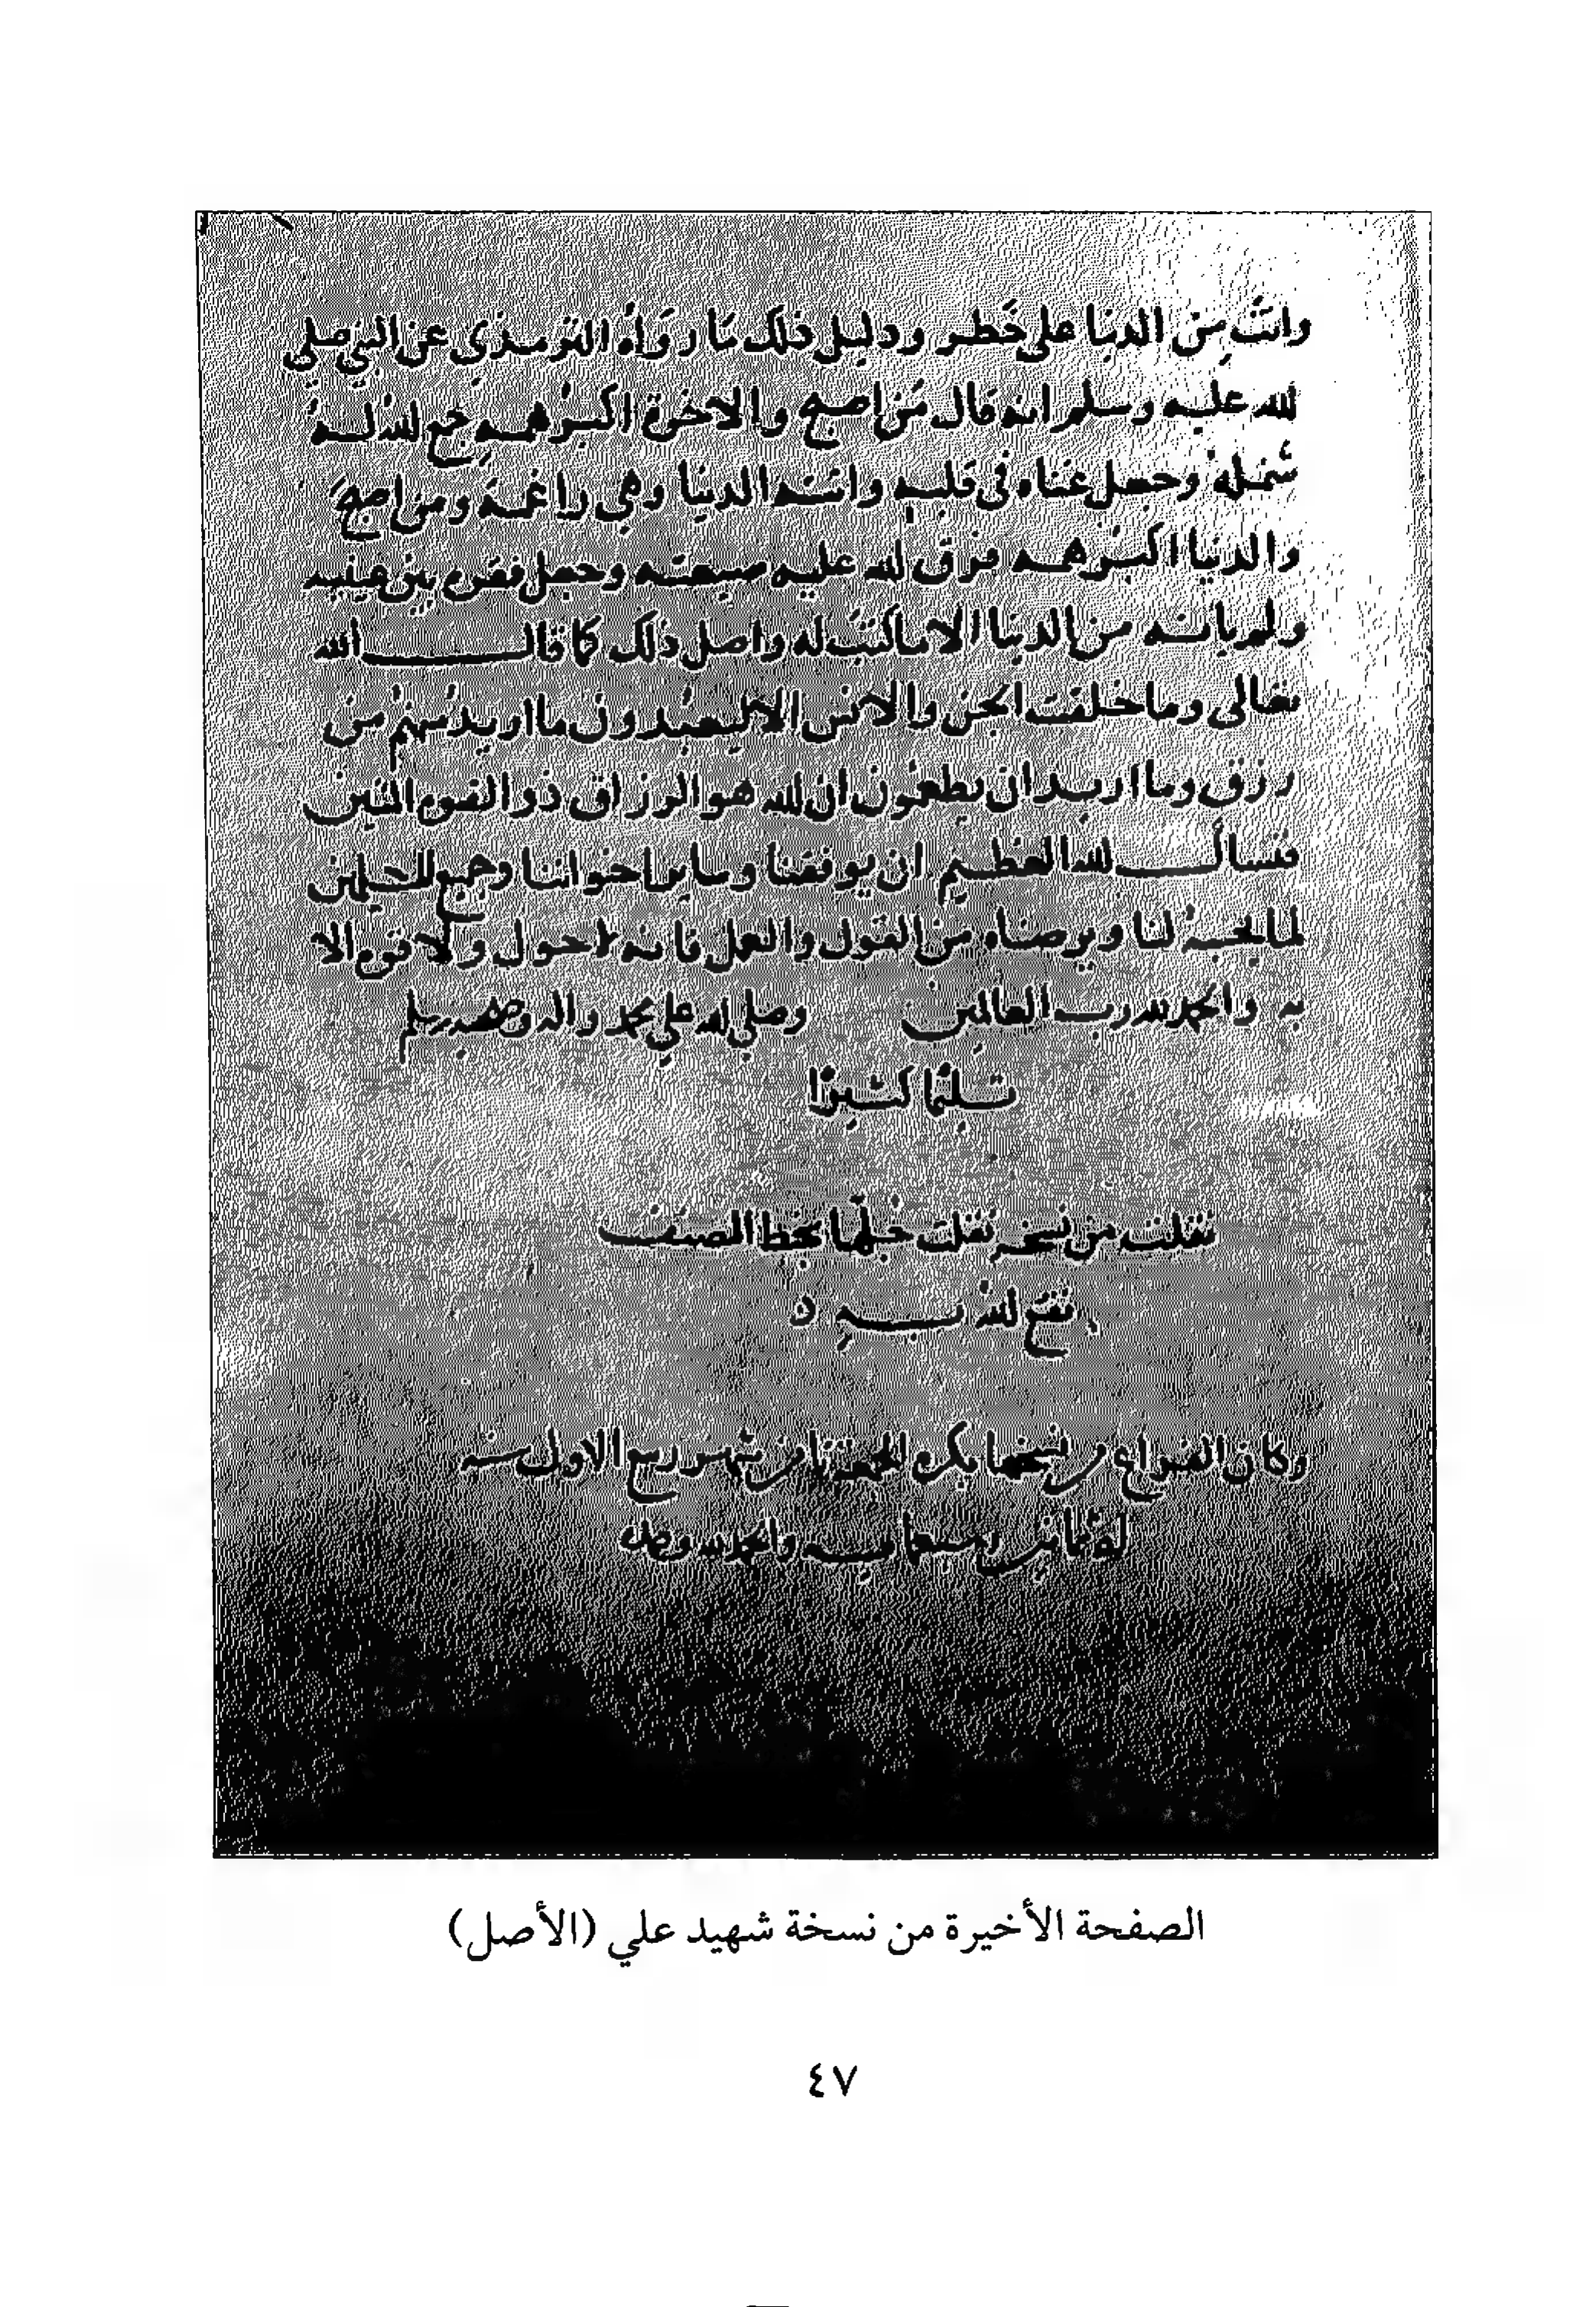 وانت من الدنيا على خطر ودليل ذلك ما رواه الترمذي عن النبي صلي
الله عليه وسلم انه قال من اصبح والاخرة اكبر همه جمع الله له
شمله وجعل غناه في قلبه واتته الدنيا وهي راغمة ومن اصبح
والدنيا اكبر همه فرق الله عليه ضيعته وجعل فقره بين عينيه
ولم ياته من الدنيا الا ما كتب له واصل ذلك كما قال الله
تعالى وما خلقت الجن والانس الا ليعبدون ما اريد منهم من
رزق وما اريد ان يطعمون ان الله هو الرزاق ذو القوه المتين
فنسأل الله العظيم ان يوفقنا وساير اخواننا وجميع المسلمين
لما يحبه لنا ويرضاه من القول والعمل فانه لا حول ولا قوه الا
به والحمد لله رب العالمين وصلي الله علي محمد واله وصحبه وسلم
تسليما كثيرا
نقلت من نسخه نقلت من خط المصنف
نفع الله به ٥
وكان الفراغ من نسخها بكره الجمعة ثامن شهر ربيع الاول سنه
ثمانين وسبعمايه والحمد لله وحده
الصفحة الأخيرة من نسخة شهيد علي (الأصل)
٤٧